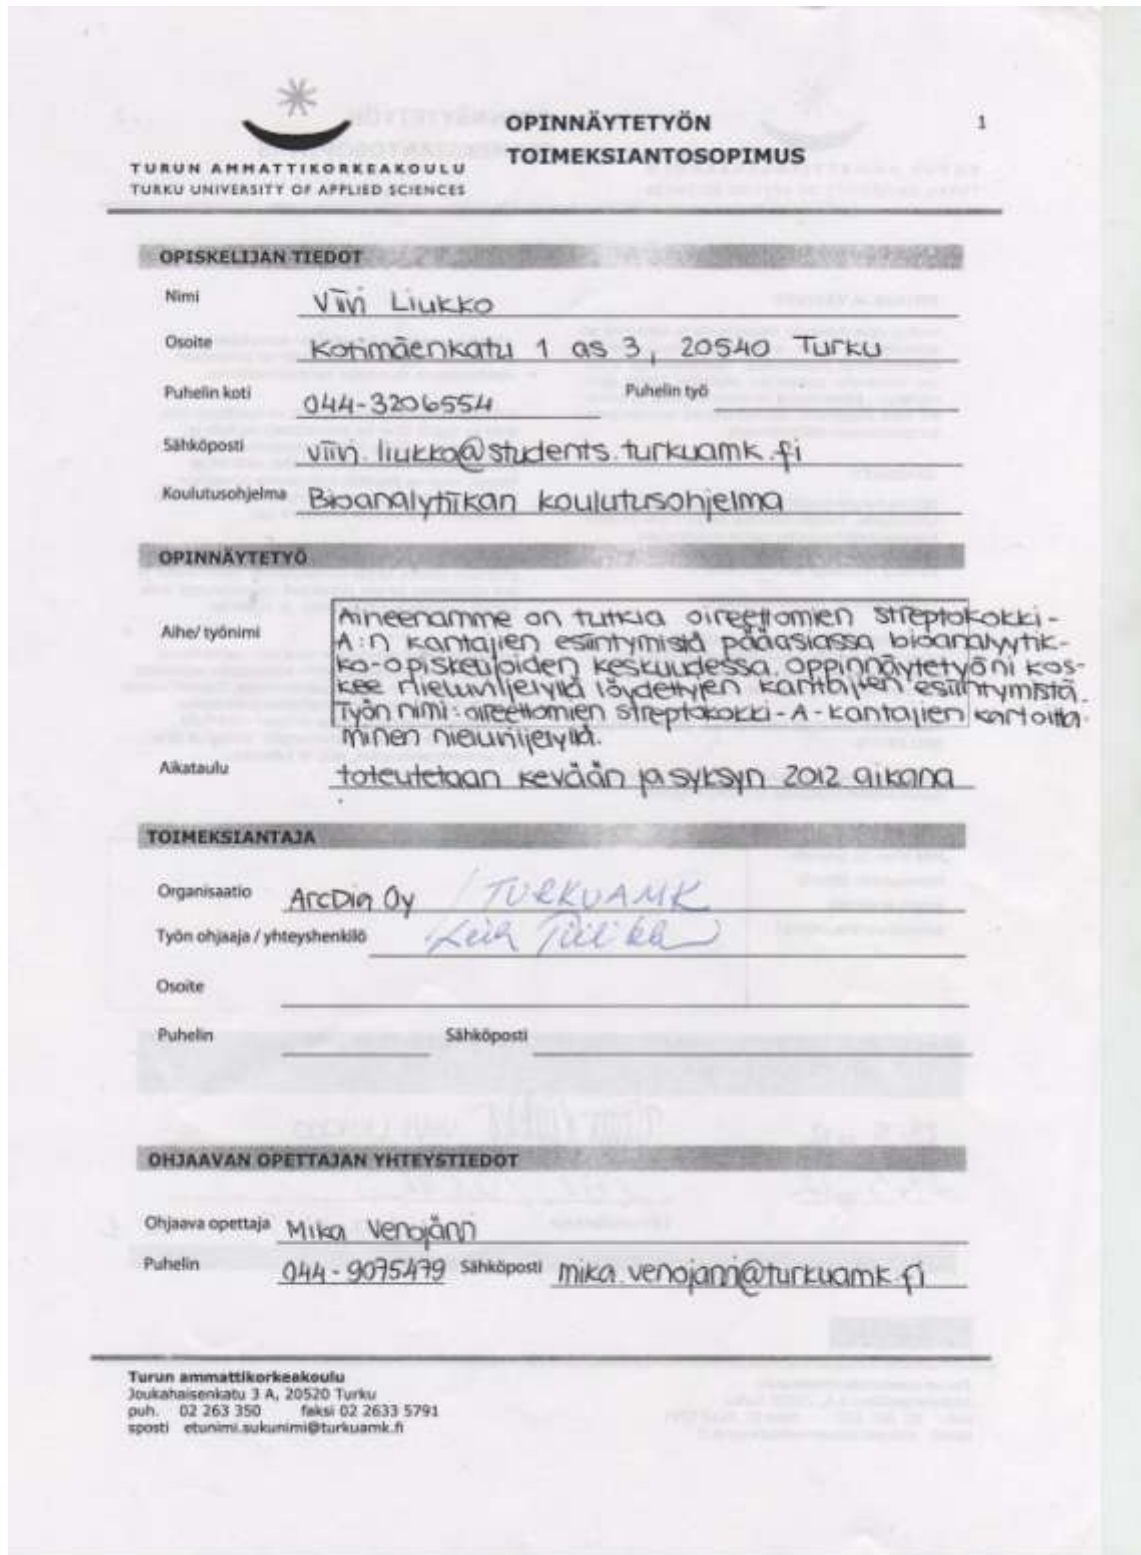 OPINNÄYTETYÖN
1
TOIMEKSIANTOSOPIMUS
TURUN AMMATTIKORKEAKOULU
TURKU UNIVERSITY OF APPLIED SCIENCES
OPISKELIJAN TIEDOT
Nimi Viivi Liukko
Osoite Kotimäenkatu 1 as 3, 20540 Turku
Puhelin koti 044-3206554 Puhelin työ
Sähköposti viivi.liukko@students.turkuamk.fi
Koulutusohjelma Bioanalytiikan koulutusohjelma
OPINNÄYTETYÖ
Aihe/ työnimi
Aineenamme on tutkia oireettomien streptokokki-
A:n kantajien esiintymistä pääasiassa bioanalyytik-
ko-opiskelijoiden keskuudessa. Oppinnäytetyöni kos-
kee nieluviljelyllä löydettyjen kantajien esiintymistä.
Työn nimi: oireettomien streptokokki-A-kantajien kartoitta-
minen nieluviljelyllä.
Aikataulu toteutetaan kevään ja syksyn 2012 aikana
TOIMEKSIANTAJA
Organisaatio ArcDia Oy / TURKUAMK
Työn ohjaaja / yhteyshenkilö
Osoite
Puhelin Sähköposti
OHJAAVAN OPETTAJAN YHTEYSTIEDOT
Ohjaava opettaja Mika Venojärvi
Puhelin 044-9075479 Sähköposti mika.venojarvi@turkuamk.fi
Turun ammattikorkeakoulu
Joukahaisenkatu 3 A, 20520 Turku
puh. 02 263 350 faksi 02 2633 5791
sposti etunimi.sukunimi@turkuamk.fi